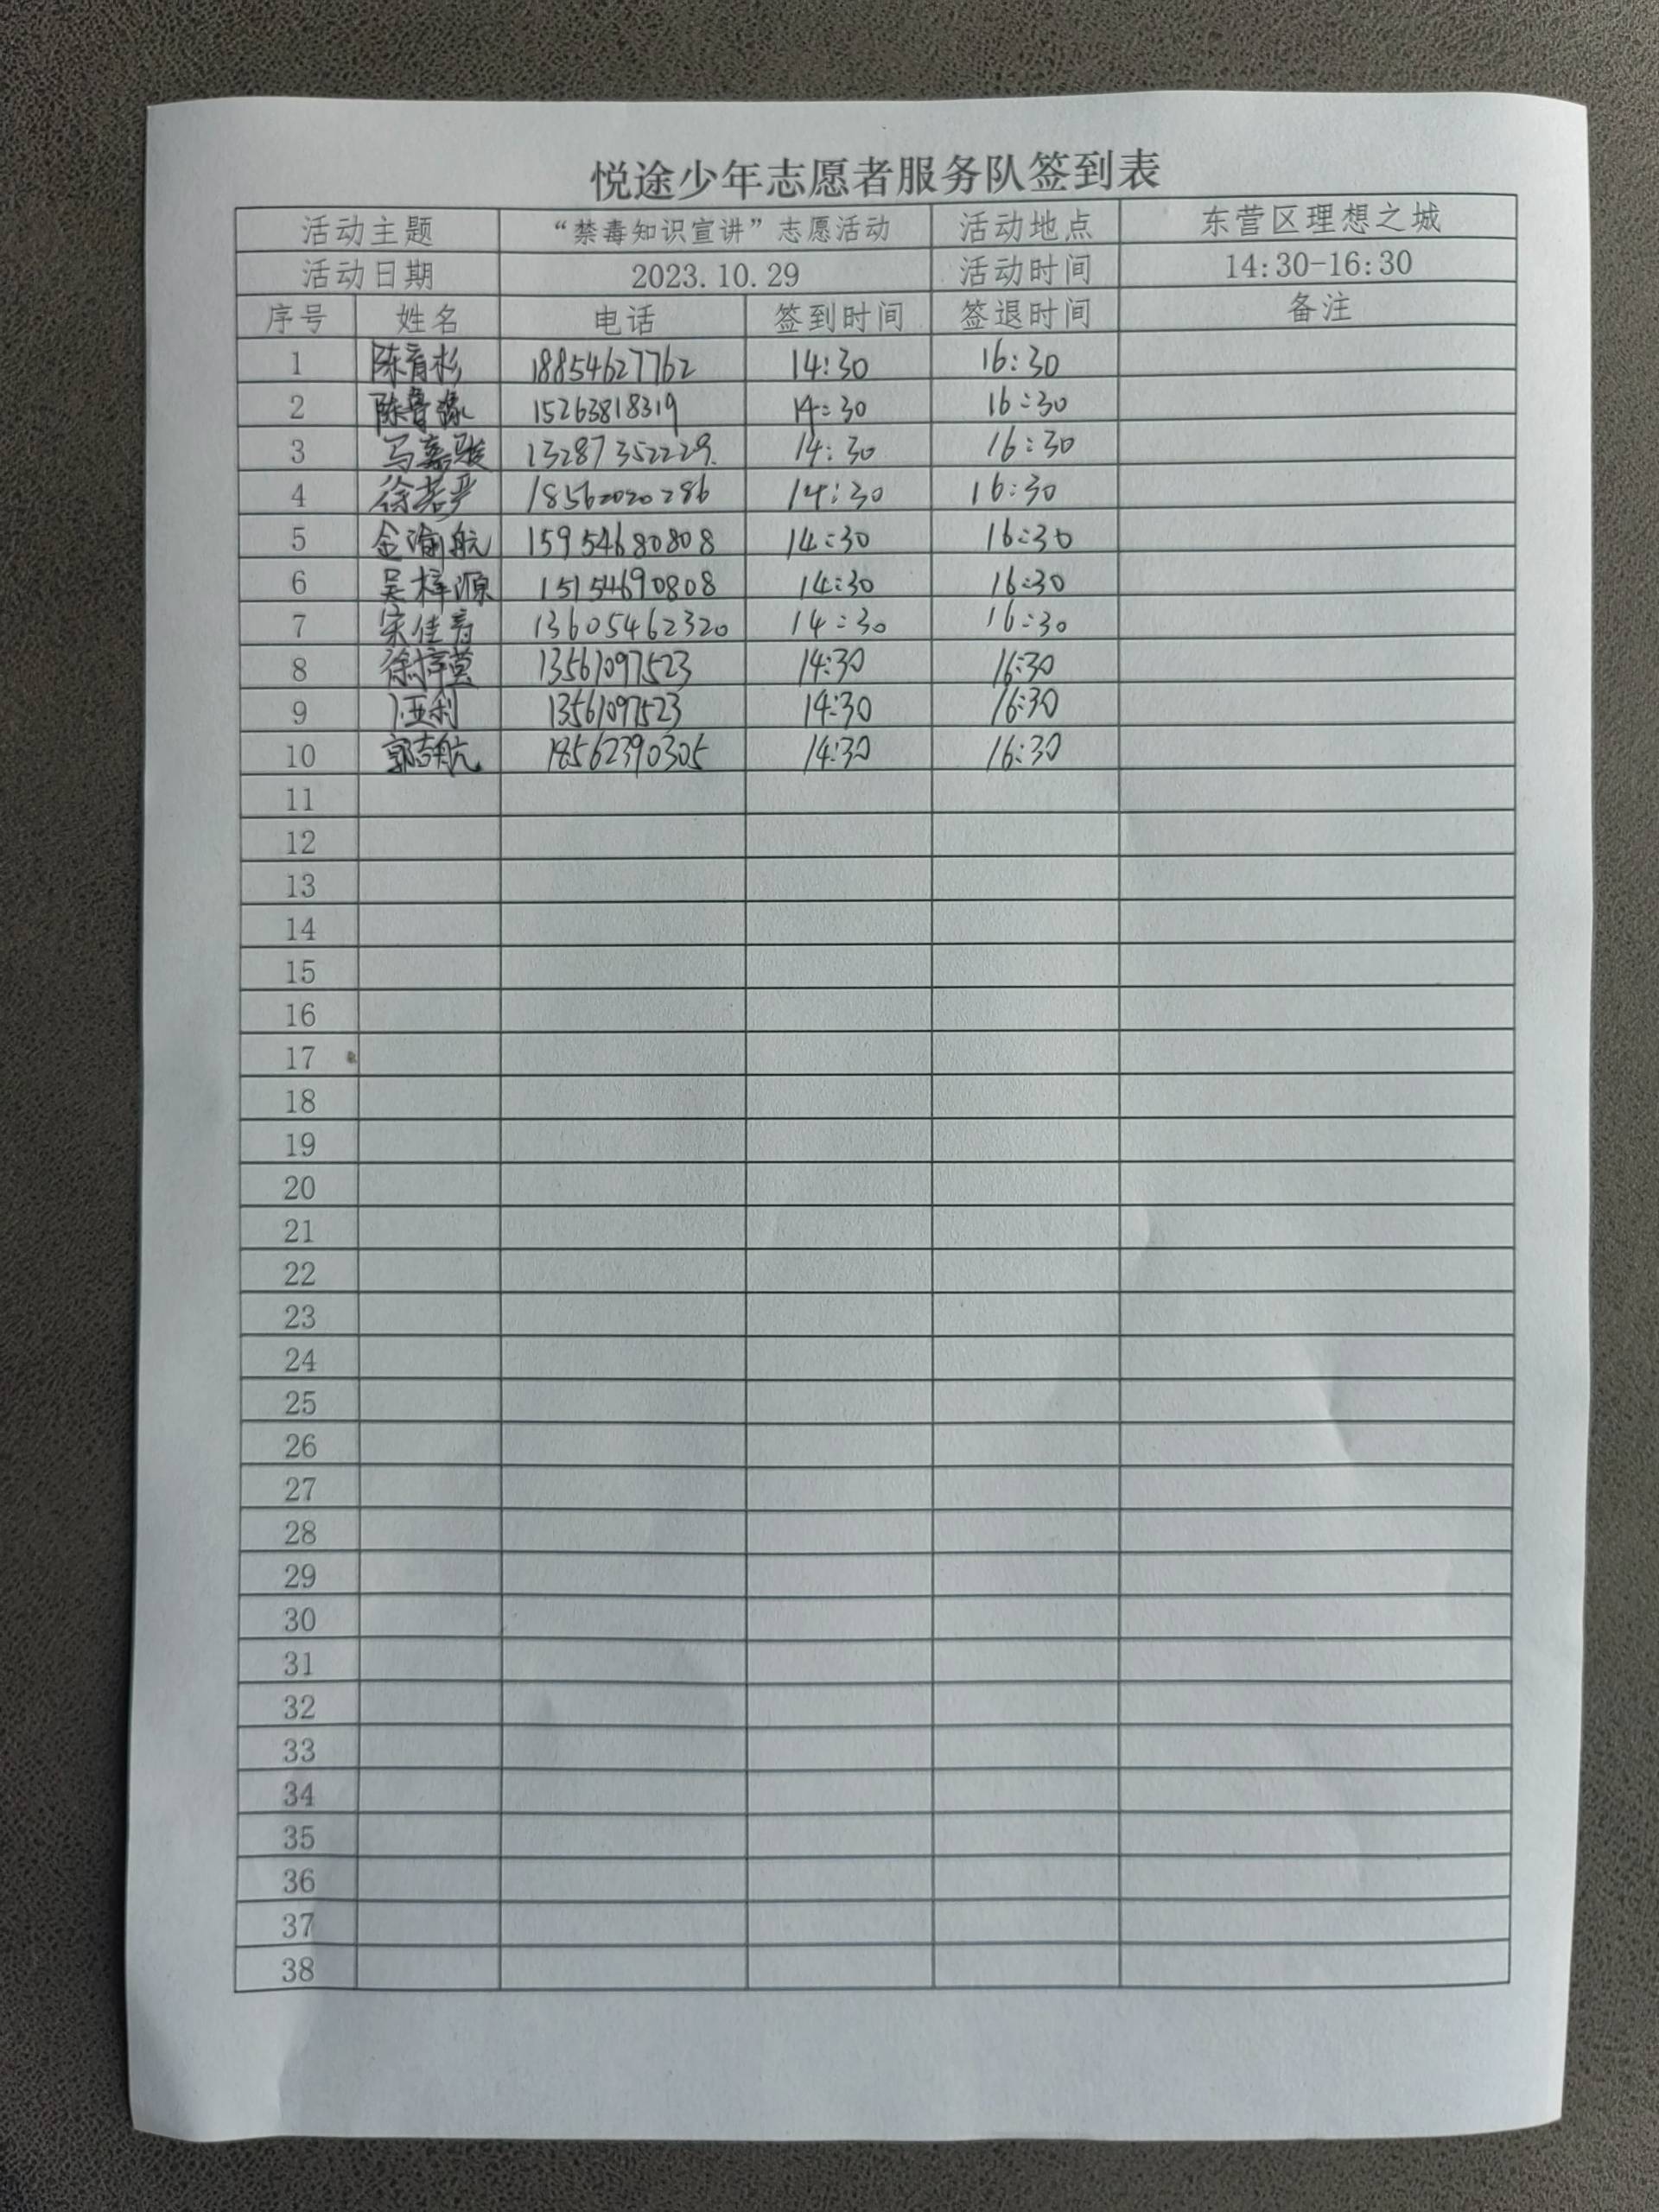 悦途少年志愿者服务队签到表
活动主题 “禁毒知识宣讲”志愿活动 活动地点 东营区理想之城
活动日期 2023.10.29 活动时间 14:30-16:30
序号 姓名 电话 签到时间 签退时间 备注
1 陈育杉 18854627762 14:30 16:30
2 15263818319 14:30 16:30
3 马嘉骏 13287352229. 14:30 16:30
4 18562020286 14:30 16:30
5 金瀚航 15954680808 14:30 16:30
6 吴梓源 15154690808 14:30 16:30
7 13605462320 14:30 16:30
8 徐梓萱 13561097523 14:30 16:30
9 13561097523 14:30 16:30
10 郭吉航 18562390305 14:30 16:30
11
12
13
14
15
16
17
18
19
20
21
22
23
24
25
26
27
28
29
30
31
32
33
34
35
36
37
38